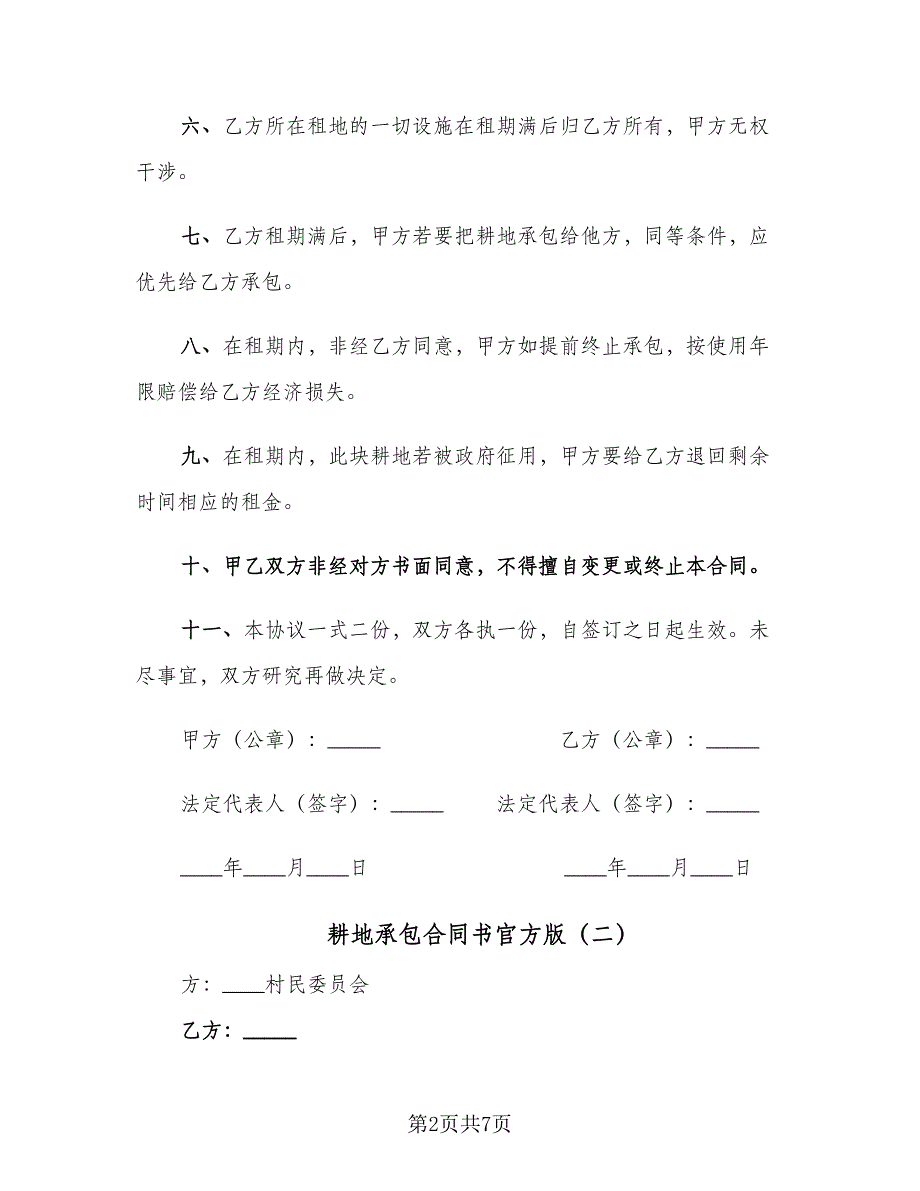 六、乙方所在租地的一切设施在租期满后归乙方所有，甲方无权
干涉。
七、乙方租期满后，甲方若要把耕地承包给他方，同等条件，应
优先给乙方承包。
八、在租期内，非经乙方同意，甲方如提前终止承包，按使用年
限赔偿给乙方经济损失。
九、在租期内，此块耕地若被政府征用，甲方要给乙方退回剩余
时间相应的租金。
十、甲乙双方非经对方书面同意，不得擅自变更或终止本合同。
十一、本协议一式二份，双方各执一份，自签订之日起生效。未
尽事宜，双方研究再做决定。
甲方（公章）：_____ 乙方（公章）：_____
法定代表人（签字）：_____ 法定代表人（签字）：_____
____年____月____日 ____年____月____日
耕地承包合同书官方版（二）
方：____村民委员会
乙方：_____
第2页共7页